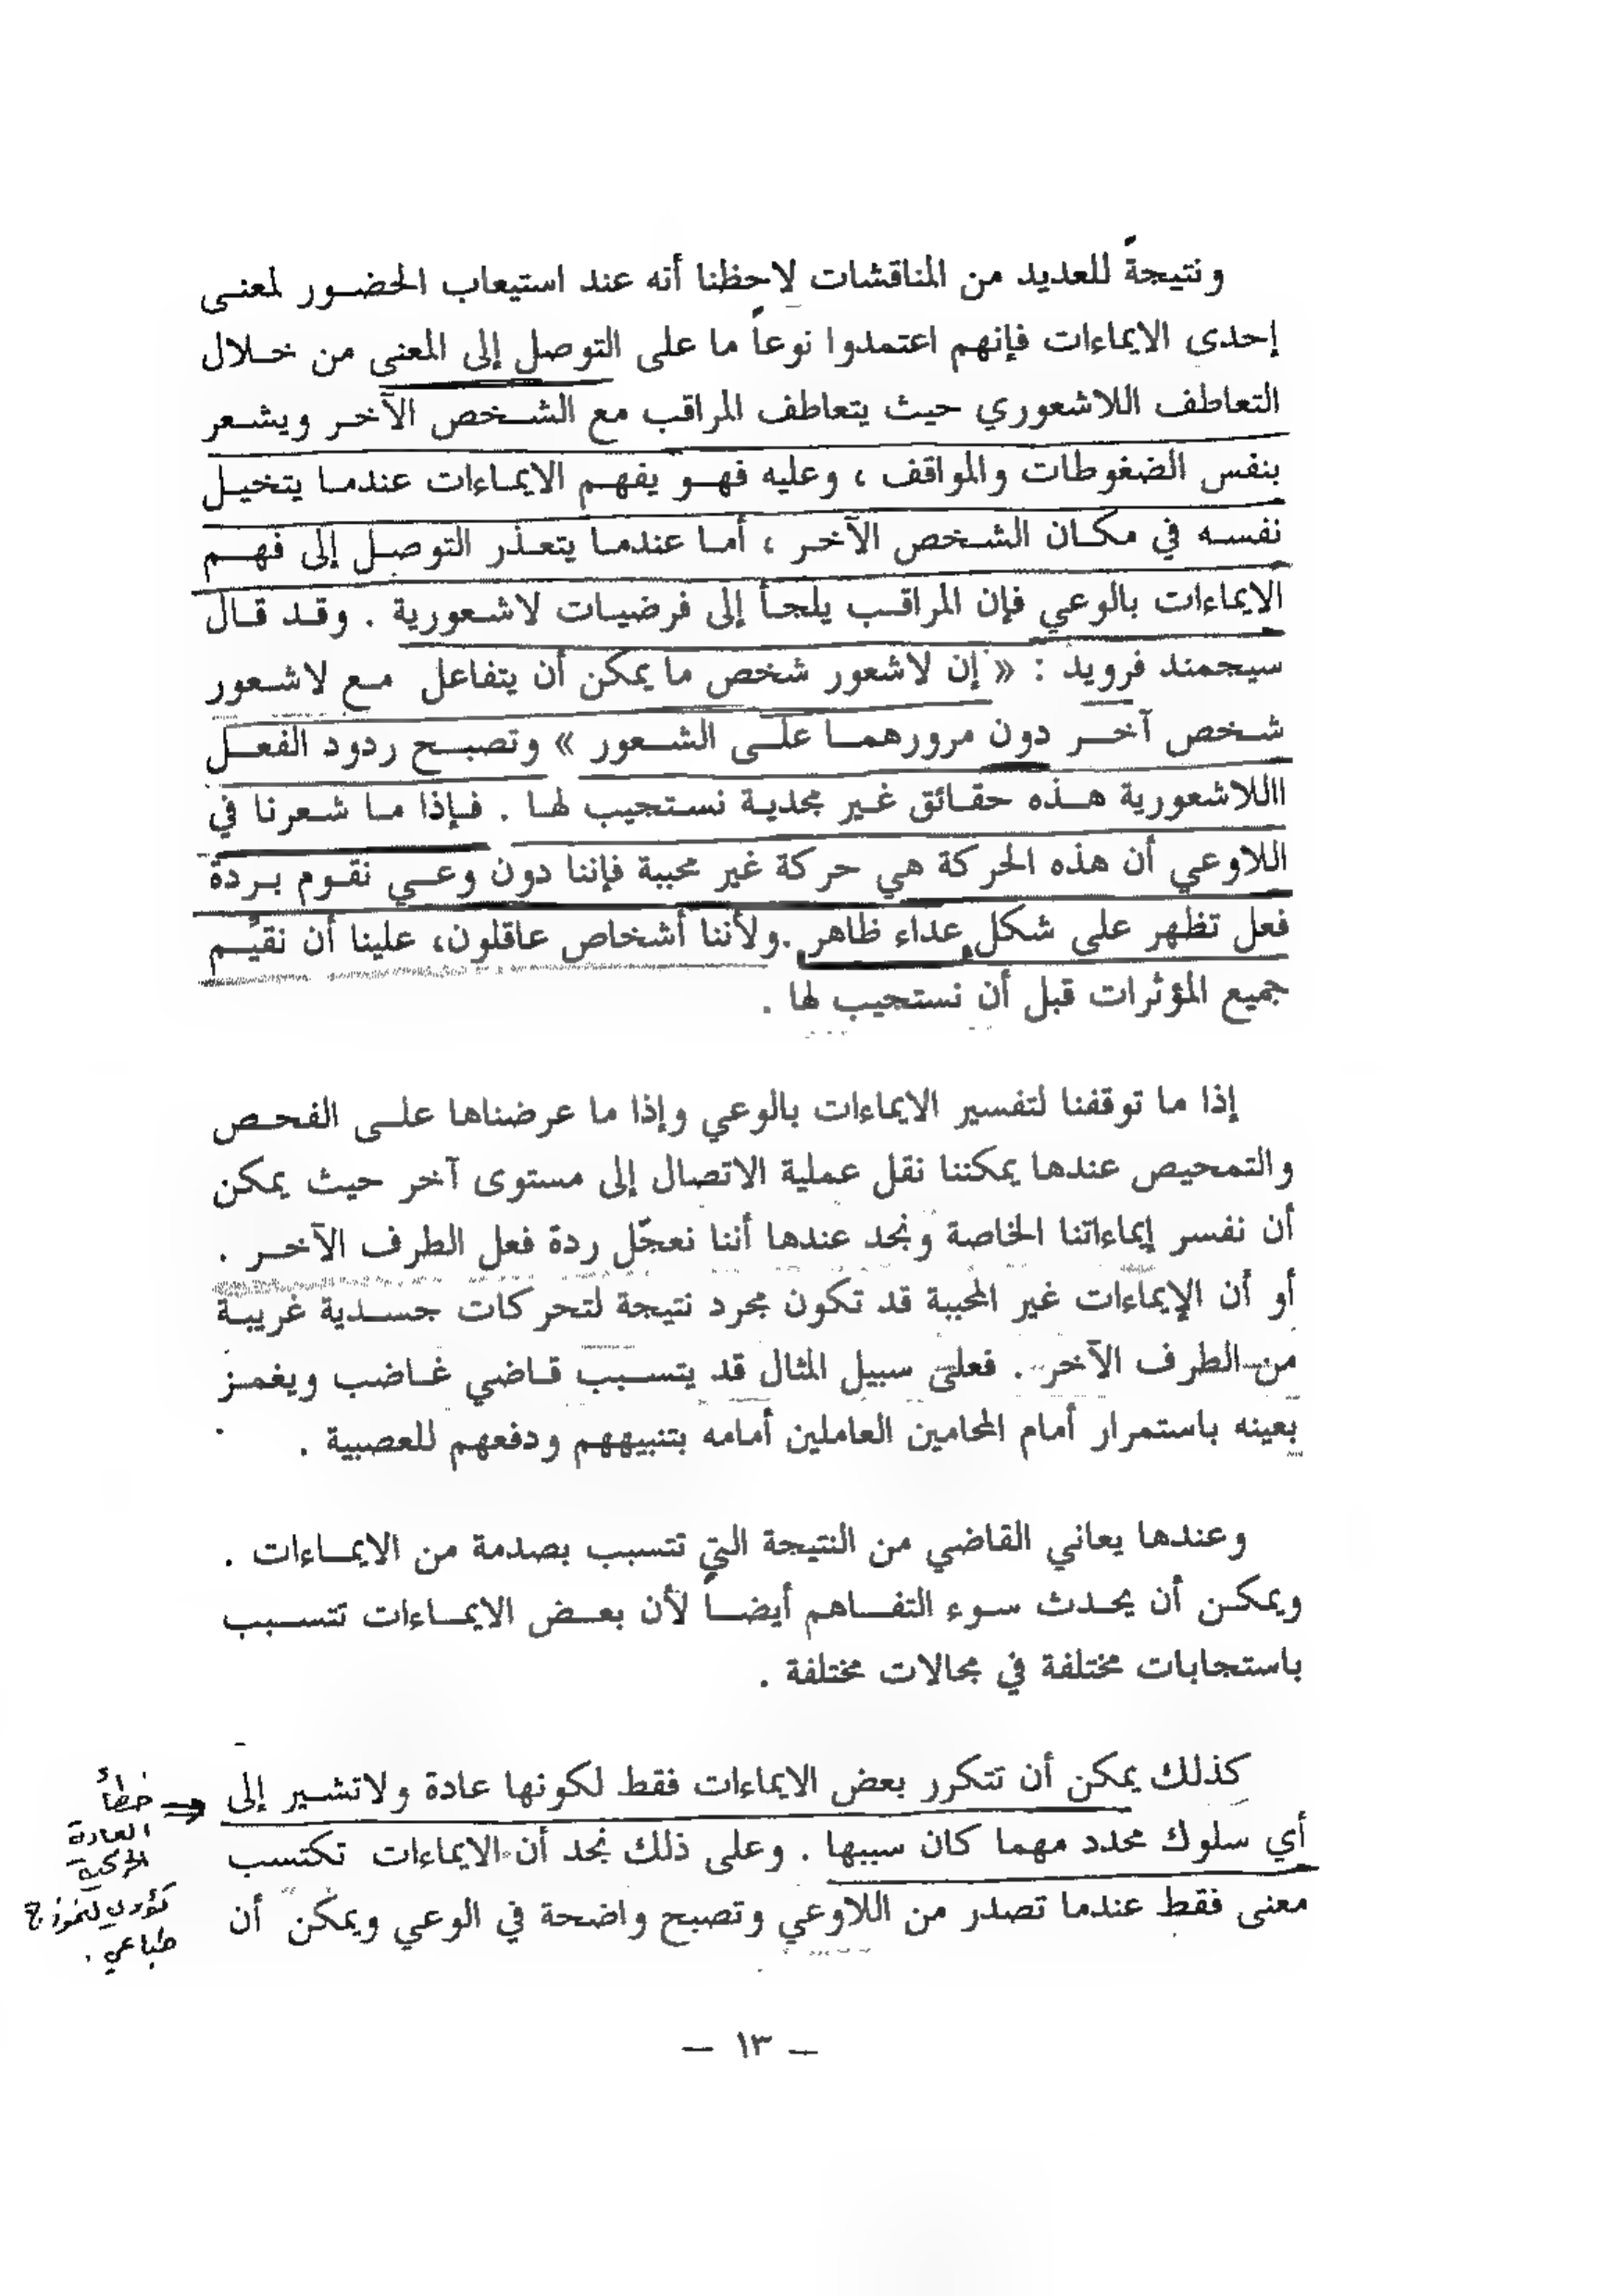 ونتيجةً للعديد من المناقشات لاحظنا أنه عند استيعاب الحضور لمعنى
إحدى الايماءات فإنهم اعتمدوا نوعاً ما على التوصل إلى المعنى من خلال
التعاطف اللاشعوري حيث يتعاطف المراقب مع الشخص الآخر ويشعر
بنفس الضغوطات والمواقف ، وعليه فهو يفهم الايماءات عندما يتخيل
نفسه في مكان الشخص الآخر ، أما عندما يتعذر التوصل إلى فهم
الايماءات بالوعي فإن المراقب يلجأ إلى فرضيات لاشعورية . وقد قال
سيجمند فرويد : « إن لاشعور شخص ما يمكن أن يتفاعل مع لاشعور
شخص آخر دون مرورهما على الشعور » وتصبح ردود الفعل
االلاشعورية هذه حقائق غير مجدية نستجيب لها . فإذا ما شعرنا في
اللاوعي أن هذه الحركة هي حركة غير محببة فإننا دون وعي نقوم بردة
فعل تظهر على شكل عداء ظاهر .ولأننا أشخاص عاقلون، علينا أن نقيِّم
جميع المؤثرات قبل أن نستجيب لها .
إذا ما توقفنا لتفسير الايماءات بالوعي وإذا ما عرضناها على الفحص
والتمحيص عندها يمكننا نقل عملية الاتصال إلى مستوى آخر حيث يمكن
أن نفسر إيماءاتنا الخاصة ونجد عندها أننا نعجّل ردة فعل الطرف الآخر .
أو أن الإيماءات غير المحببة قد تكون مجرد نتيجة لتحركات جسدية غريبة
من الطرف الآخر . فعلى سبيل المثال قد يتسبب قاضي غاضب ويغمز
بعينه باستمرار أمام المحامين العاملين أمامه بتنبيههم ودفعهم للعصبية .
وعندها يعاني القاضي من النتيجة التي تتسبب بصدمة من الايماءات .
ويمكن أن يحدث سوء التفاهم أيضاً لأن بعض الايماءات تتسبب
باستجابات مختلفة في مجالات مختلفة .
كذلك يمكن أن تتكرر بعض الايماءات فقط لكونها عادة ولاتشير إلى
أي سلوك محدد مهما كان سببها . وعلى ذلك نجد أن الايماءات تكتسب
معنى فقط عندما تصدر من اللاوعي وتصبح واضحة في الوعي ويمكن أن
خطأ
العادة
الحركية
لنموذج
طباعي .
– ١٣ –